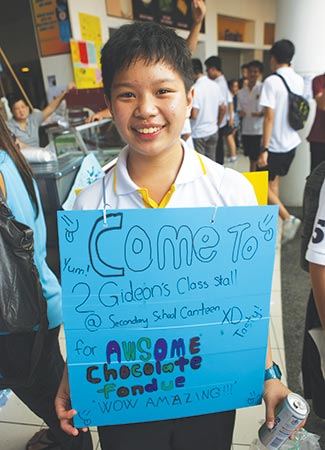 Come To
Yum!
2 Gideon's Class Stall
@ Secondary School Canteen
XD
Tasty!
for AWSOME
Chocolate
fondue
"WOW AMAZING!!!"